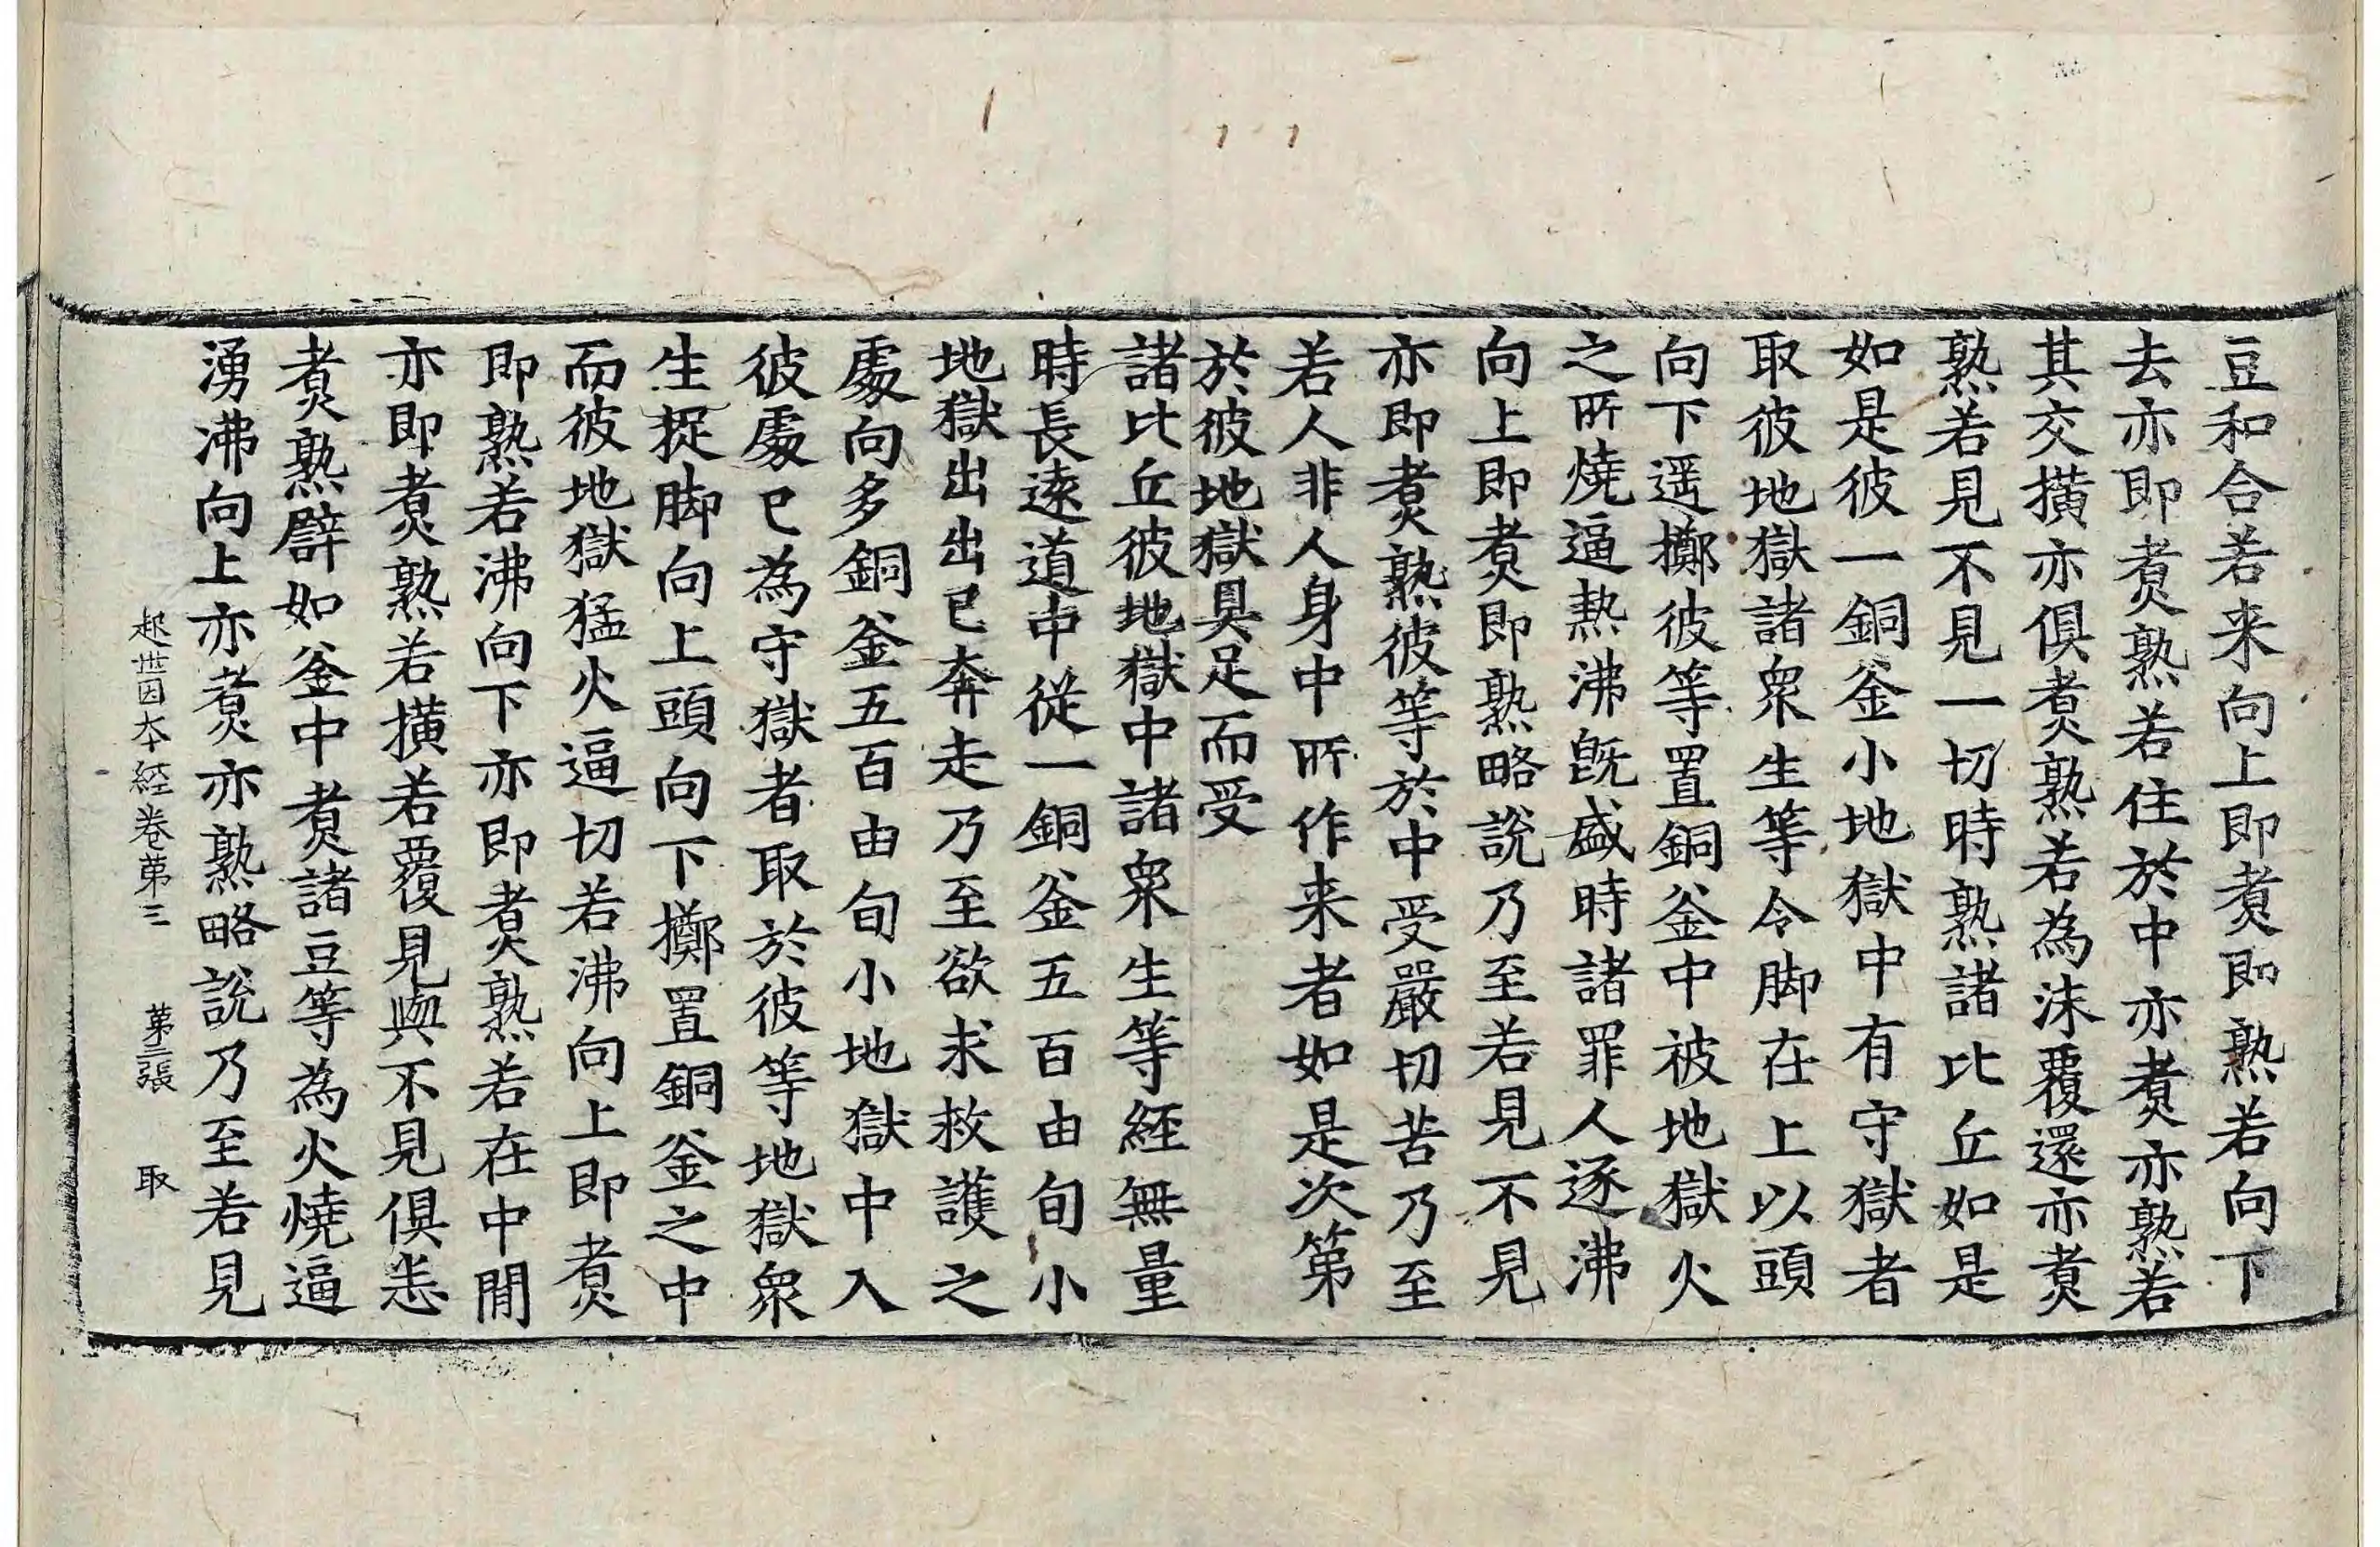 豆和合若来向上即煑即熟若向下
去亦即煑熟若住於中亦煑亦熟若
其交撗亦俱煑熟若為沫覆還亦煑
熟若見不見一切時熟諸比丘如是
如是彼一銅釜小地獄中有守獄者
取彼地獄諸衆生等令脚在上以頭
向下遥擲彼等置銅釜中被地獄火
之所燒逼熱沸旣盛時諸罪人逐沸
向上即煑即熟略說乃至若見不見
亦即煑熟彼等於中受嚴切苦乃至
若人非人身中所作来者如是次第
於彼地獄具足而受
諸比丘彼地獄中諸衆生等経無量
時長逺道中從一銅釜五百由旬小
地獄出出已奔走乃至欲求救護之
處向多銅釜五百由旬小地獄中入
彼處已為守獄者取於彼等地獄衆
生捉脚向上頭向下擲置銅釜之中
而彼地獄猛火逼切若沸向上即煑
即熟若沸向下亦即煑熟若在中間
亦即煑熟若撗若覆見與不見俱恙
煑熟譬如釜中煑諸豆等為火燒逼
湧沸向上亦煑亦熟略說乃至若見
起世因夲経卷苐三 苐三張 取